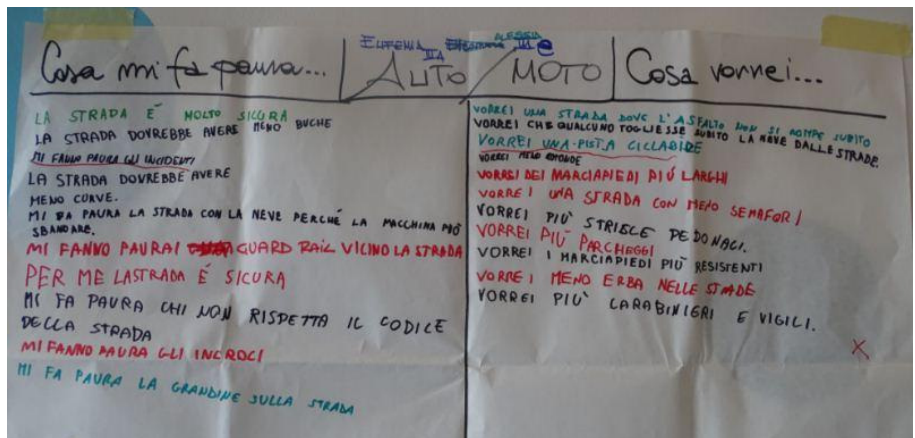 Cosa mi fa paura...
EUFEMIA ALESSIA
IIA III e
AUTO / MOTO
Cosa vorrei...
LA STRADA È MOLTO SICURA
LA STRADA DOVREBBE AVERE MENO BUCHE
MI FANNO PAURA GLI INCIDENTI
LA STRADA DOVREBBE AVERE
MENO CURVE.
MI FA PAURA LA STRADA CON LA NEVE PERCHÉ LA MACCHINA PUÓ
SBANDARE.
MI FANNO PAURA I GUARD RAIL VICINO LA STRADA
PER ME LASTRADA É SICURA
MI FA PAURA CHI NON RISPETTA IL CODICE
DELLA STRADA
MI FANNO PAURA GLI INCROCI
MI FA PAURA LA GRANDINE SULLA STRADA
VORREI UNA STRADA DOVE L'ASFALTO NON SI ROMPE SUBITO
VORREI CHE QUALCUNO TOGLIESSE SUBITO LA NEVE DALLE STRADE.
VORREI UNA PISTA CICLABILE
VORREI MENO ROTONDE
VORREI DEI MARCIAPIEDI PIÚ LARGHI
VORREI UNA STRADA CON MENO SEMAFORI
VORREI PIU' STRISCE PEDONALI.
VORREI PIÙ PARCHEGGI
VORREI I MARCIAPIEDI PIÙ RESISTENTI
VORREI MENO ERBA NELLE STRADE
VORREI PIU' CARABINIERI E VIGILI.
X